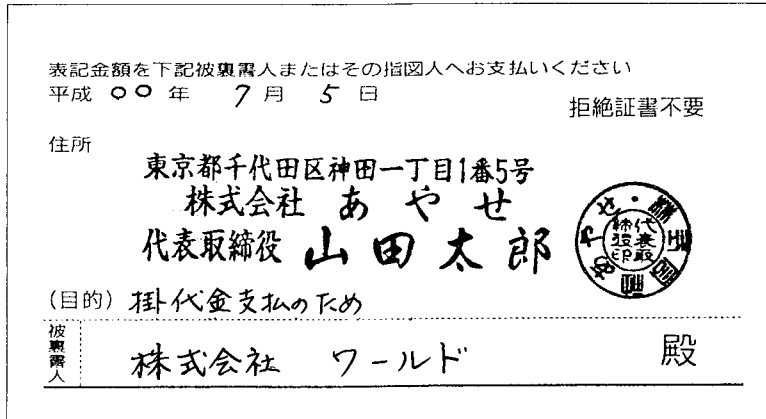 表記金額を下記被裏書人またはその指図人へお支払いください
平成 00 年 7 月 5 日
拒絶証書不要
住所
東京都千代田区神田一丁目1番5号
株式会社 あやせ
代表取締役 山田太郎
(目的) 掛代金支払のため
被裏書人 株式会社 ワールド 殿
代表取締役印